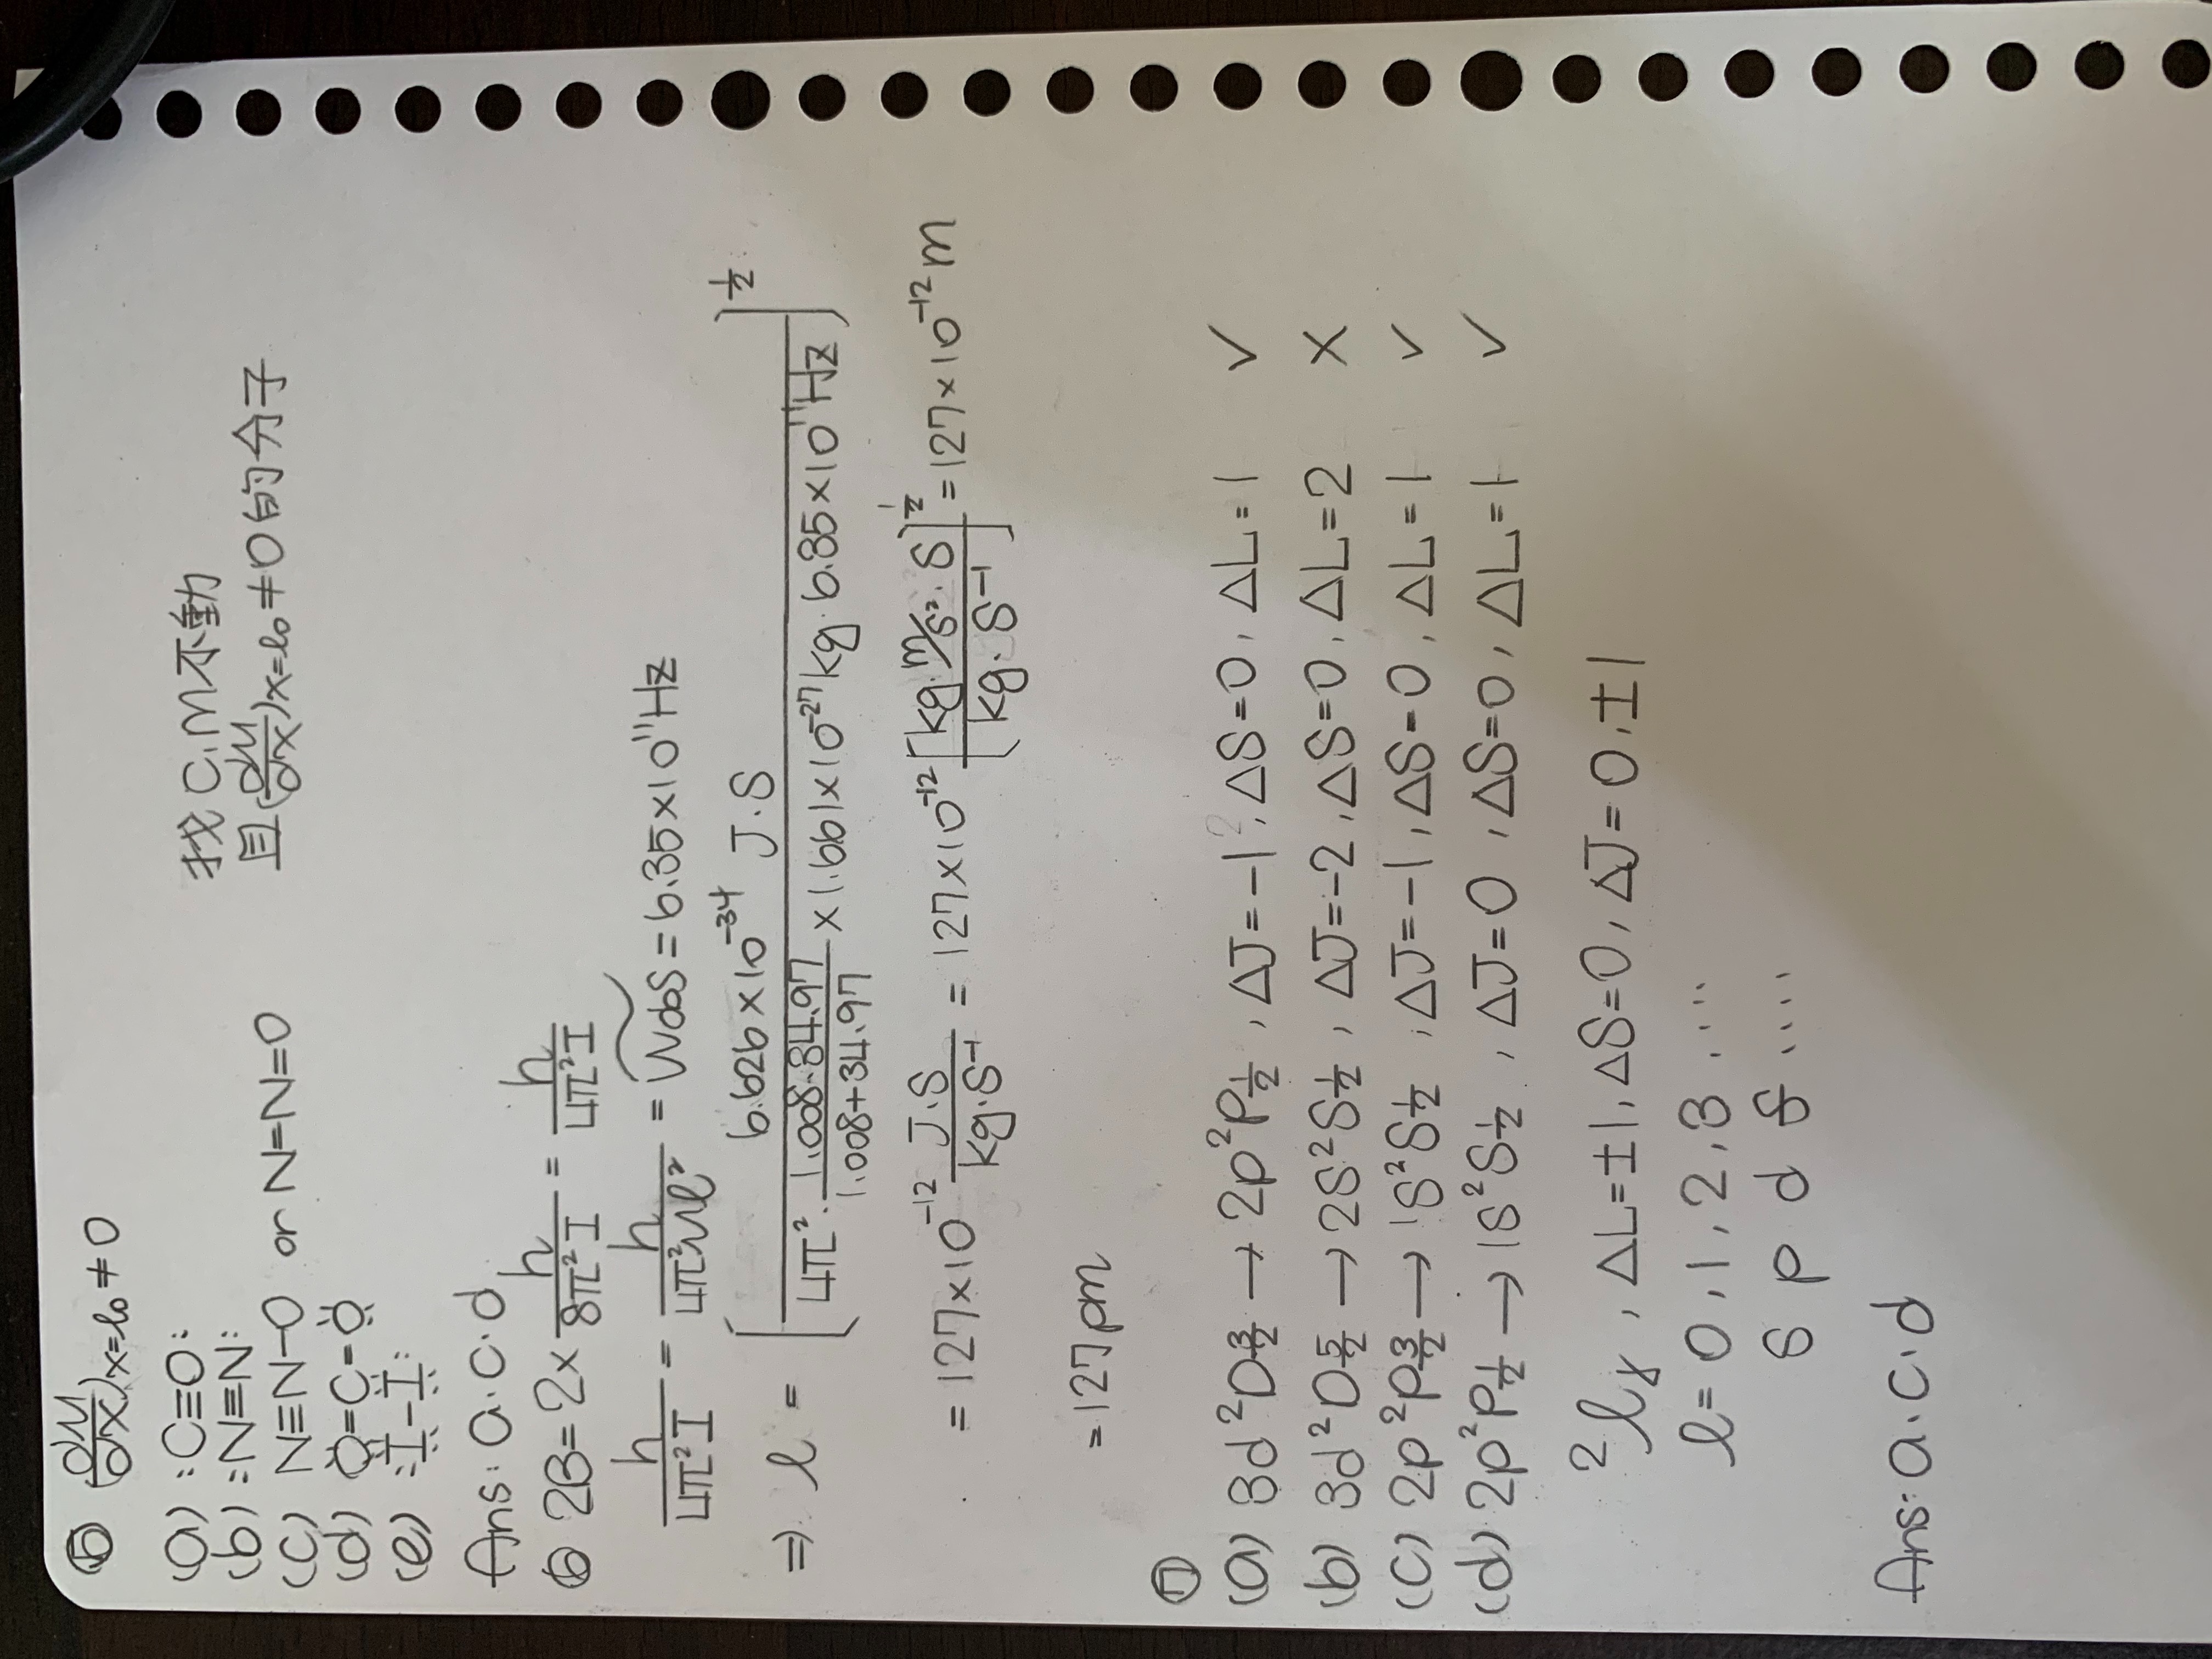 ⑤ dμ/dx)x=l₀ ≠ 0
(a) :C≡O:
(b) :N≡N:
(c) N≡N-O or N=N=O
(d) O=C=O
(e) :I-I:
找 C.M不動
且(dμ/dx)x=l₀≠0的分子
Ans: a.c.d
⑥ 2B= 2× h/8π²I = h/4π²I
h/4π²I = h/4π²μl² = W̃obs = 6.35×10¹¹Hz
⇒ l = [6.626×10⁻³⁴ J.S / 4π²· 1.008·34.97/1.008+34.97 ×1.661×10⁻²⁷kg·6.35×10¹¹Hz]^½
= 127×10⁻¹² J.S/kg.S⁻¹ = 127×10⁻¹² [kg.m/s².S / kg.S⁻¹]^½ = 127×10⁻¹² m
=127pm
⑦
(a) 3d²D3/2 → 2p²P1/2 , ΔJ=-1?, ΔS=0, ΔL=1 ✓
(b) 3d²D5/2 → 2S²S1/2 , ΔJ=-2, ΔS=0, ΔL=2 ×
(c) 2p²P3/2 → 1S²S1/2 , ΔJ=-1, ΔS=0, ΔL=1 ✓
(d) 2p²P1/2 → 1S²S1/2 , ΔJ=0, ΔS=0, ΔL=1 ✓
²lγ , ΔL=±1, ΔS=0, ΔJ=0,±1
l= 0,1,2,3....
S p d f ....
Ans: a.c.d